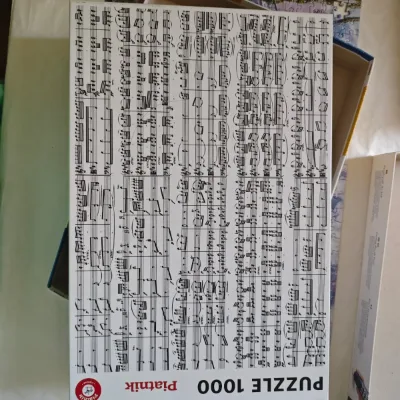 PUZZLE 1000
Piatnik